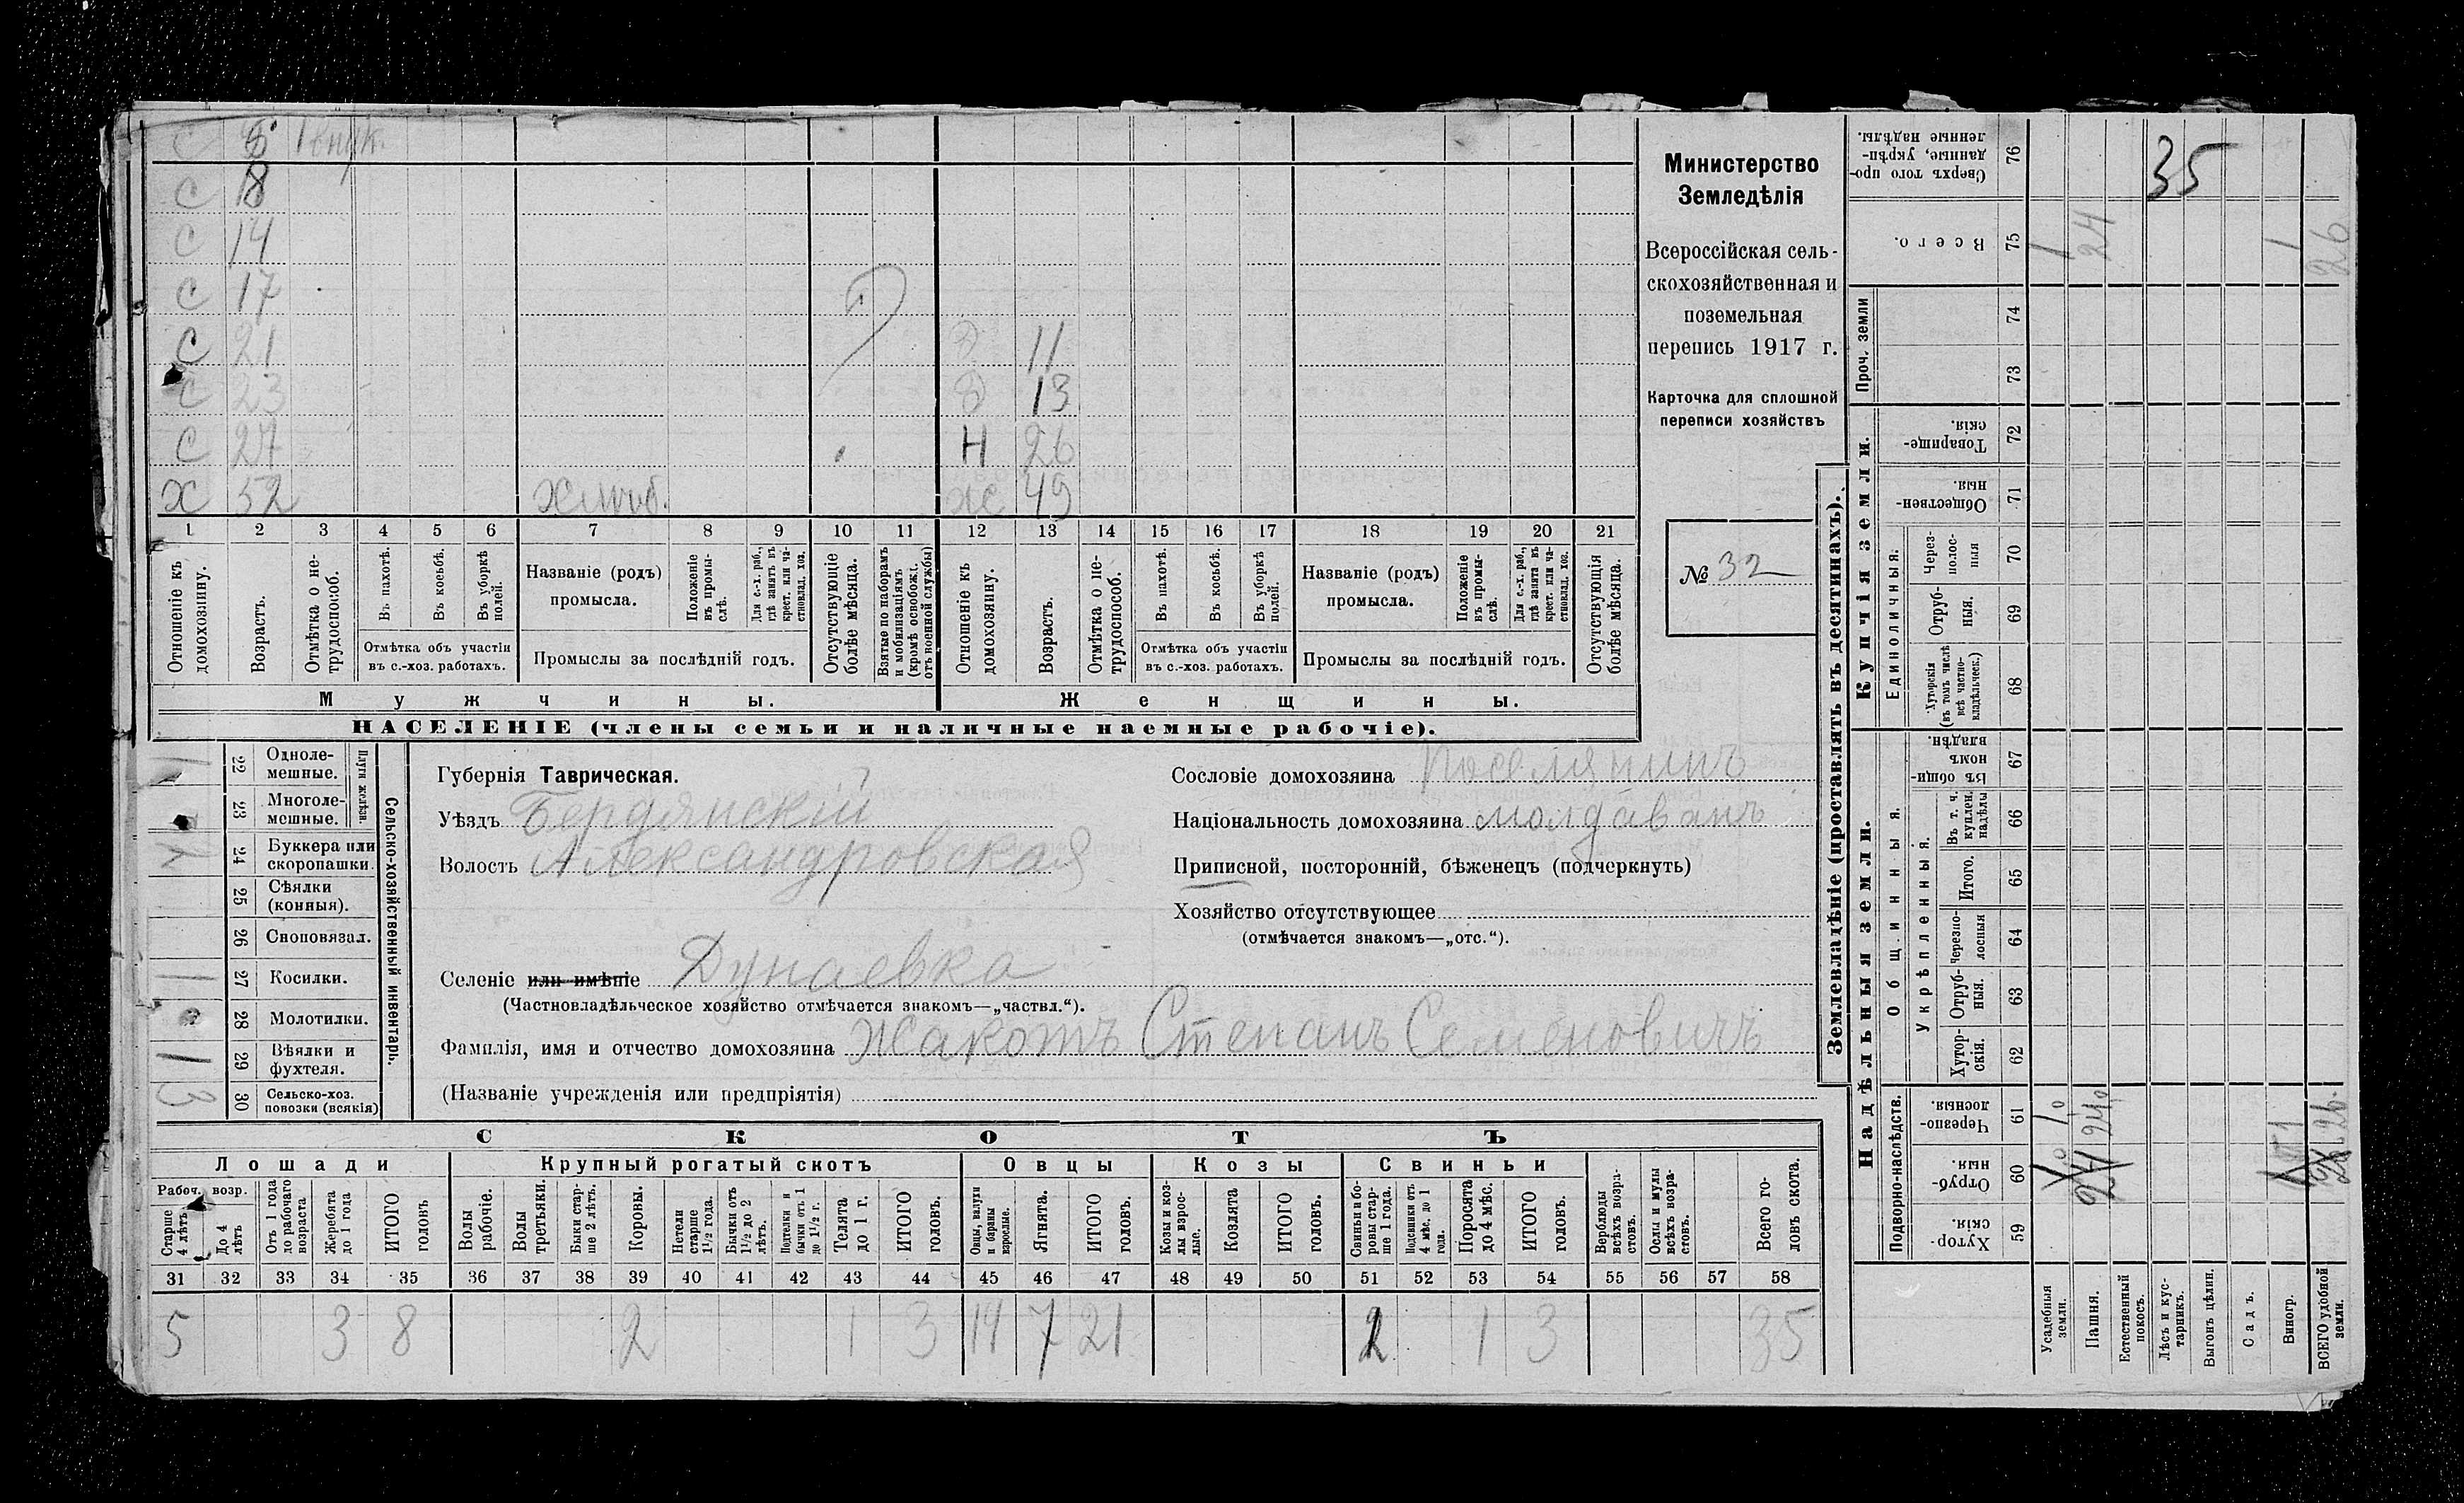 С 5 1 внук.
С 18
С 14
С 17
С 21 Д 11
С 23 Д 13
С 27 Н 26
Х 52 хлѣб. Ж 49
1 2 3 4 5 6 7 8 9 10 11 12 13 14 15 16 17 18 19 20 21
Отношеніе къ домохозяину.
Возрастъ.
Отмѣтка о нетрудоспособ.
Въ пахотѣ.
Въ косьбѣ.
Въ уборкѣ полей.
Отмѣтка объ участіи въ с.-хоз. работахъ.
Названіе (родъ) промысла.
Положеніе въ промыслѣ.
Для с.-х. раб., гдѣ занятъ въ крест. или частновлад. хоз.
Промыслы за послѣдній годъ.
Отсутствующіе болѣе мѣсяца.
Взятые по наборамъ и мобилизаціямъ (кромѣ освобожд. отъ военной службы)
Отношеніе къ домохозяину.
Возрастъ.
Отмѣтка о нетрудоспособ.
Въ пахотѣ.
Въ косьбѣ.
Въ уборкѣ полей.
Отмѣтка объ участіи въ с.-хоз. работахъ.
Названіе (родъ) промысла.
Положеніе въ промыслѣ.
Для с.-х. раб., гдѣ занята въ крест. или частновлад. хоз.
Промыслы за послѣдній годъ.
Отсутствующія болѣе мѣсяца.
Мужчины. Женщины.
НАСЕЛЕНІЕ (члены семьи и наличные наемные рабочіе).
Министерство
Земледѣлія
Всероссійская сель-
скохозяйственная и
поземельная
перепись 1917 г.
Карточка для сплошной
переписи хозяйствъ
№ 32
Сельско-хозяйственный инвентарь.
Плуги желѣзн.
22 Одноле-мешные. 1
23 Многоле-мешные.
24 Буккера или скоропашки.
25 Сѣялки (конныя).
26 Сноповязал.
27 Косилки. 1
28 Молотилки.
29 Вѣялки и фухтеля. 1
30 Сельско-хоз. повозки (всякія) 3
Губернія Таврическая.
Уѣздъ Бердянскій
Волость Александровская
Селеніе или имѣніе Дунаевка
(Частновладѣльческое хозяйство отмѣчается знакомъ—„частвл.“).
Фамилія, имя и отчество домохозяина Жакотъ Степанъ Семеновичъ
(Названіе учрежденія или предпріятія)
Сословіе домохозяина Поселянинъ
Національность домохозяина молдаванъ
Приписной, посторонній, бѣженецъ (подчеркнуть)
Хозяйство отсутствующее
(отмѣчается знакомъ—„отс.“).
СКОТЪ
Лошади Крупный рогатый скотъ Овцы Козы Свиньи
Рабоч. возр.
Старше 4 лѣтъ.
До 4 лѣтъ
Отъ 1 года до рабочаго возраста
Жеребята до 1 года
ИТОГО головъ
Волы рабочіе.
Волы третьяки.
Быки старше 2 лѣтъ.
Коровы.
Нетели старше 1½ года.
Бычки отъ 1½ до 2 лѣтъ.
Подтелки и бычки отъ 1 до 1½ г.
Телята до 1 г.
ИТОГО головъ.
Овцы, валухи и бараны взрослые.
Ягнята.
ИТОГО головъ.
Козы и козлы взрослые.
Козлята
ИТОГО головъ.
Свиньи и боровы старше 1 года.
Подсвинки отъ 4 мѣс. до 1 года.
Поросята до 4 мѣс.
ИТОГО головъ.
Верблюды всѣхъ возрастовъ.
Ослы и мулы всѣхъ возрастовъ.
Всего головъ скота.
31 32 33 34 35 36 37 38 39 40 41 42 43 44 45 46 47 48 49 50 51 52 53 54 55 56 57 58
5 3 8 2 1 3 14 7 21 2 1 3 35
Землевладѣніе (проставлять въ десятинахъ).
Надѣльныя земли.
Купчія земли.
Проч. земли
Подворно-наслѣдств.
Общинныя.
Укрѣпленныя.
Единоличныя.
Сверхъ того проданные, укрѣпленные надѣлы. 76 35
Всего. 75 1 24 1 26
74
73
Товарищескія. 72
Общественныя. 71
Черезполосныя 70
Отрубныя. 69
Хуторскія (въ томъ числѣ всѣ частновладѣльческ.) 68
Въ общинномъ владѣн. 67
Въ т. ч. куплен. надѣлы 66
Итого. 65
Черезполосныя 64
Отрубныя. 63
Хуторскія. 62
Черезполосныя. 61 24 1 26
Отрубныя. 60 24
Хуторскія. 59
Усадебныя земли.
Пашня.
Естественный покосъ.
Лѣсъ и кустарникъ.
Выгонъ цѣлин.
Садъ.
Виногр.
ВСЕГО удобной земли.